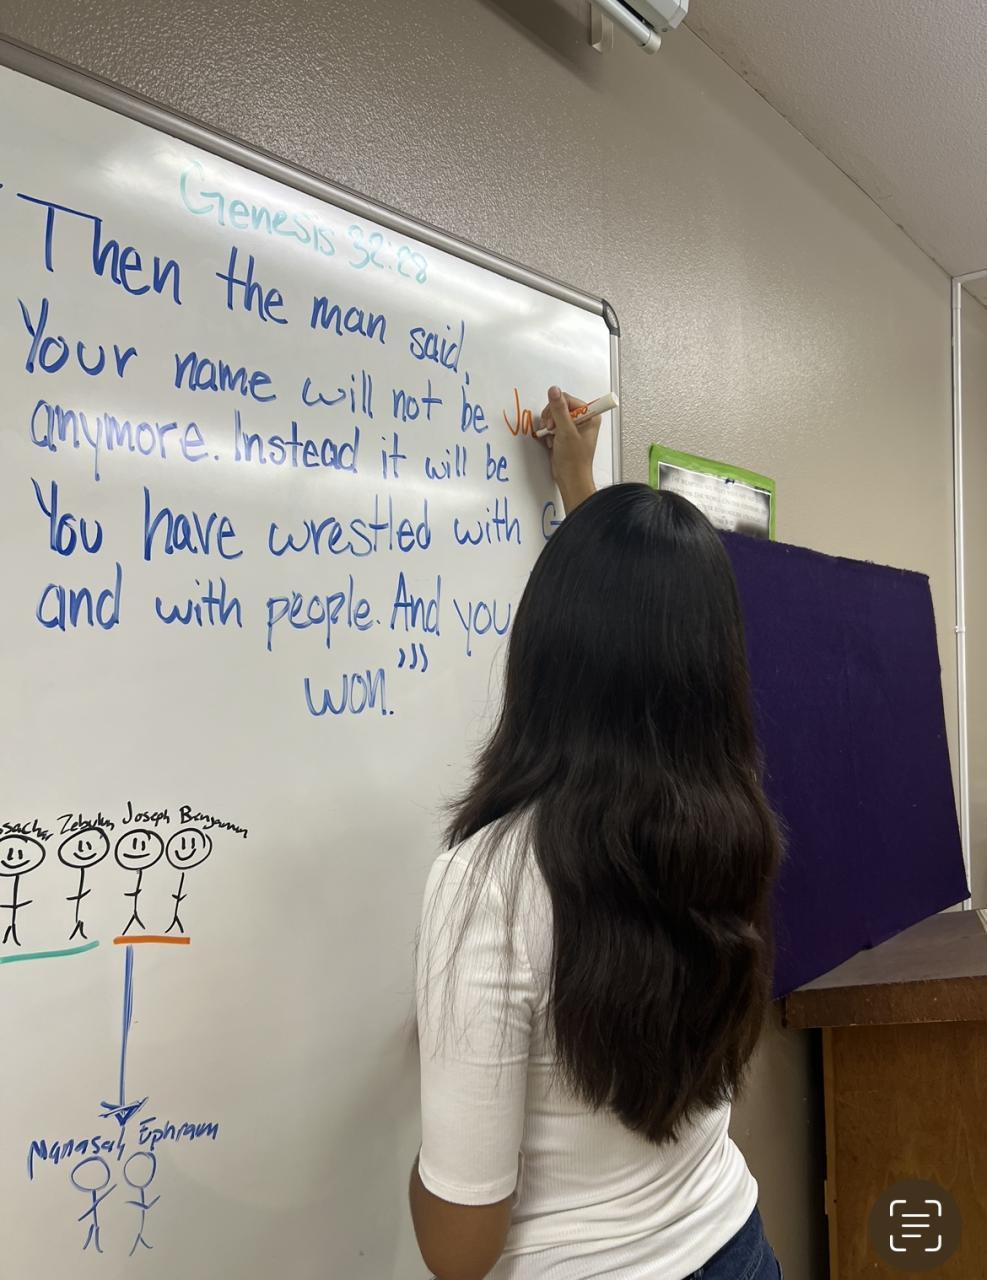 Genesis 32:28
"Then the man said,
Your name will not be Ja
anymore. Instead it will be
You have wrestled with G
and with people. And you
won.”’
Zebulun Joseph Benjamin
Manasah Ephraim